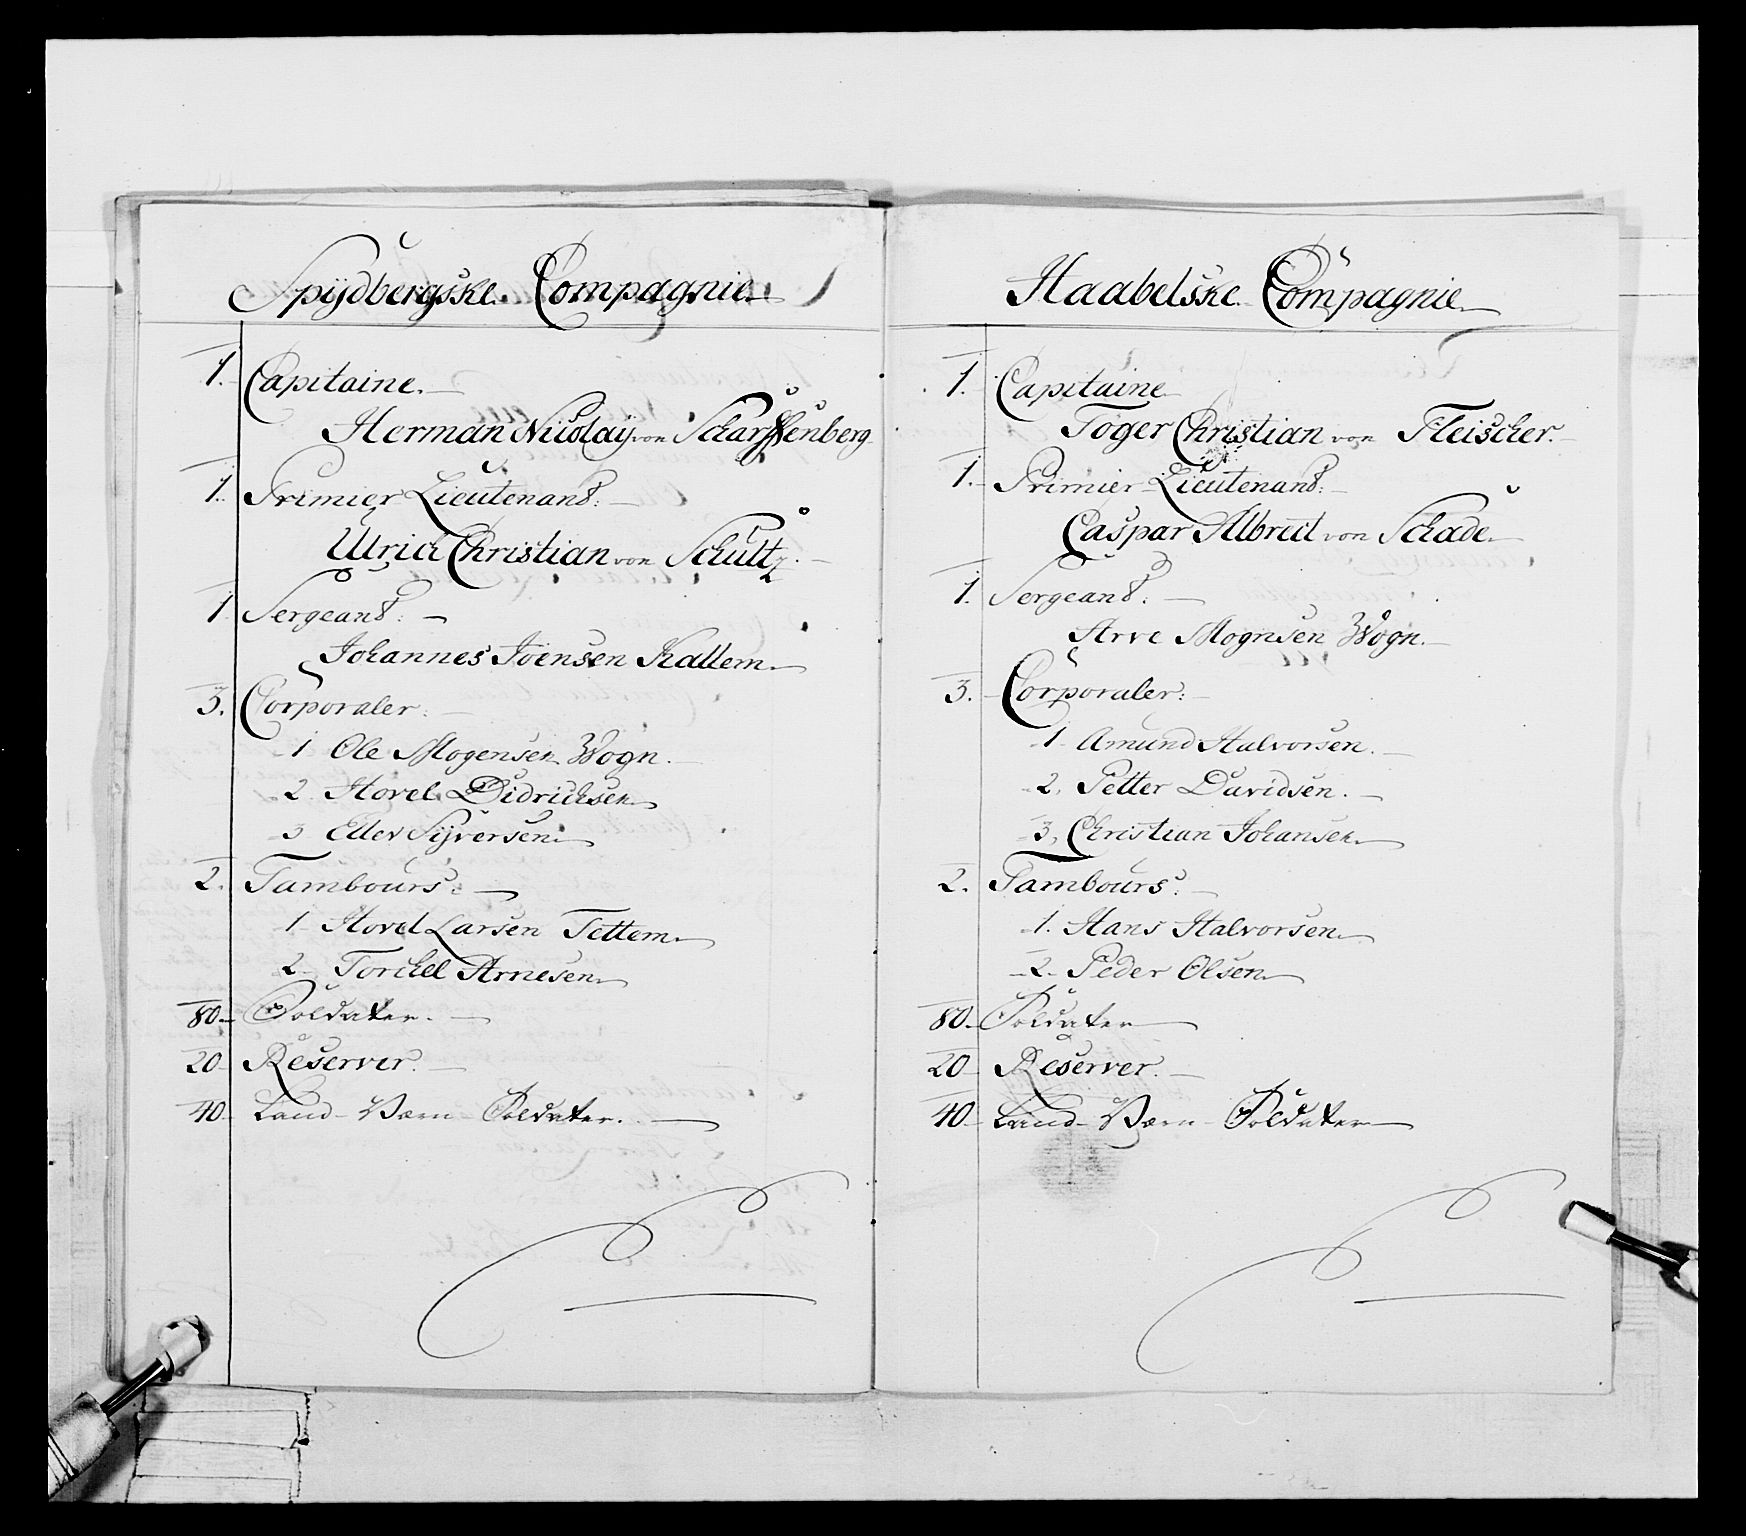 Spydbergske Compagnie
1. Capitaine.
Herman Nicolay von Scharffenberg
1. Primier Lieutenant:
Ulrich Christian von Schultz.
1. Sergeant:
Johannes Joensen Kallem
3. Corporaler:
1 Ole Mogensen Wogn.
2. Hovel Didrichsen
3 Ellev Syversen
2. Tambours:
1 Hovel Larsen Tettem
2 Torchel Arnesen
80 Soldater.
20 Reserver.
40 Land-Værn Soldater.
Haabelske Compagnie
1. Capitaine
Toger Christian von Fleischer.
1. Primier-Lieutenant:
Caspar Albrect von Schade
1. Sergeant:
Arve Mognsen Wogn.
3. Corporaler:
1. Amund Halvorsen.
2. Petter Davidsen.
3. Christian Johansen
2. Tambours:
1. Hans Halvorsen
2. Peder Olsen
80. Soldater
20 Reserver.
40. Land-Værn-Soldater